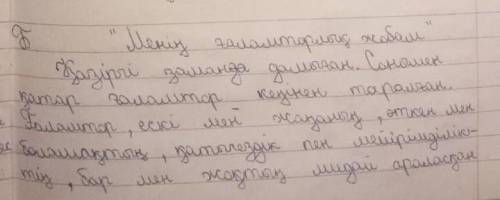 Б "Менің ғаламторлық жобам"
Қазіргі заманда дамыған. Сонымен
қатар ғаламтор кеңінен таралған.
Ғаламтор, ескі мен жаңаның, өткен мен
болашақтың, қатыгездік пен мейірімділік-
тің, бар мен жоқтың мидай араласқан